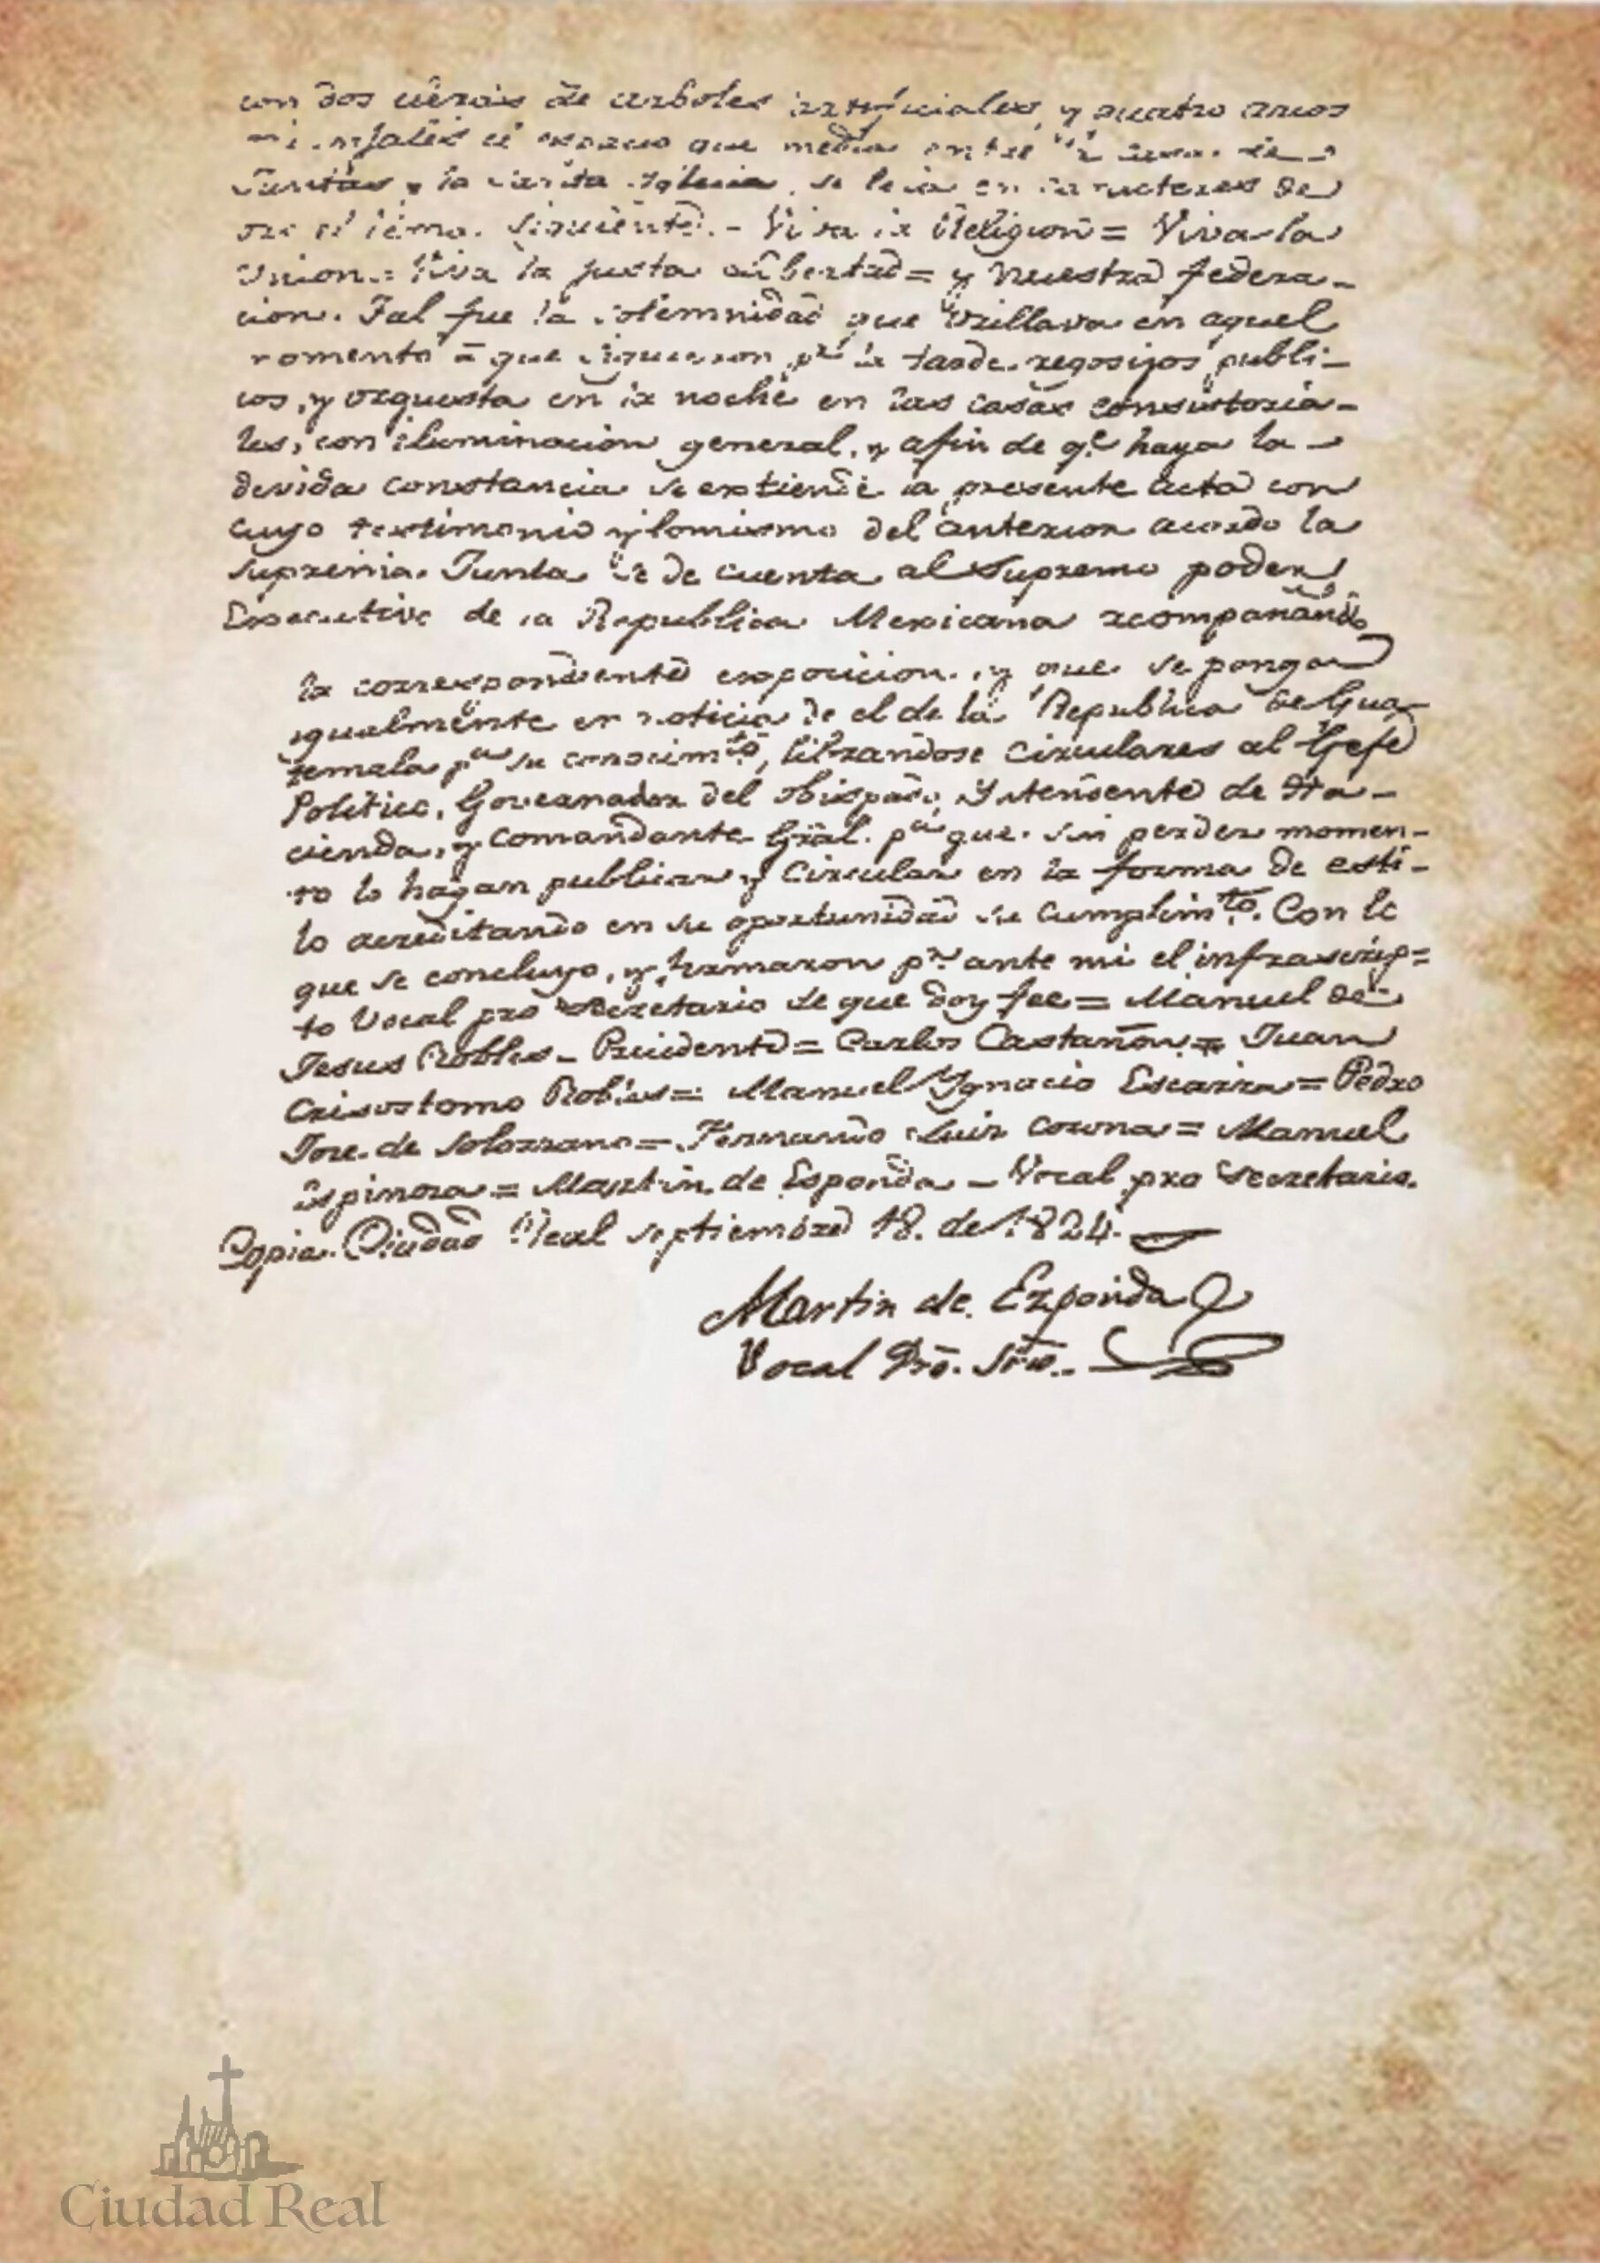 con dos  de arboles artificiales, y quatro arcos
 que media entre
Juntas y la Santa Iglesia, se leia en caracteres de
oro el lema siguiente. - Viva la Religion = Viva la
Union = Viva la justa Libertad = y nuestra federa-
cion. Tal fue la solemnidad que brillava en aquel
momento á que siguieron pr. la tarde regosijos publi-
cos, y orquesta en la noche en las casas consistoria-
les, con iluminacion general, y afin de qe. haya la
devida constancia se extiende la presente acta con
cuyo testimonio y lo mismo del anterior acordo la
Suprema Junta se de cuenta al Supremo poder
Executivo de la Republica Mexicana acompañando
la correspondiente exposicion, y que se ponga
igualmente en noticia de el de la Republica de Gua-
temala pa. su conocimto., librandose circulares al Gefe
Politico, Governador del obispado, Yntendente de Ha-
cienda, y Comandante Gral. pa. que sin perder momen-
to lo hagan publicar y Circular en la forma de esti-
lo acreditando en su oportunidad su Cumplimto. Con lo
que se concluyo, y firmaron pr. ante mi el infrascrip=
to Vocal pro Secretario de que doy fee = Manuel de
Jesus Robles - Presidente = Carlos Castañon = Juan
Crisostomo Robles = Manuel Ygnacio Escarra = Pedro
Jose de Solorzano = Fernando Luis Corona = Manuel
Espinosa = Martin de Esponda - Vocal pro Secretario.
Copia. Ciudad Real septiembre 18. de 1824.
Martin de Esponda
Vocal Pro. Srio.
Ciudad Real